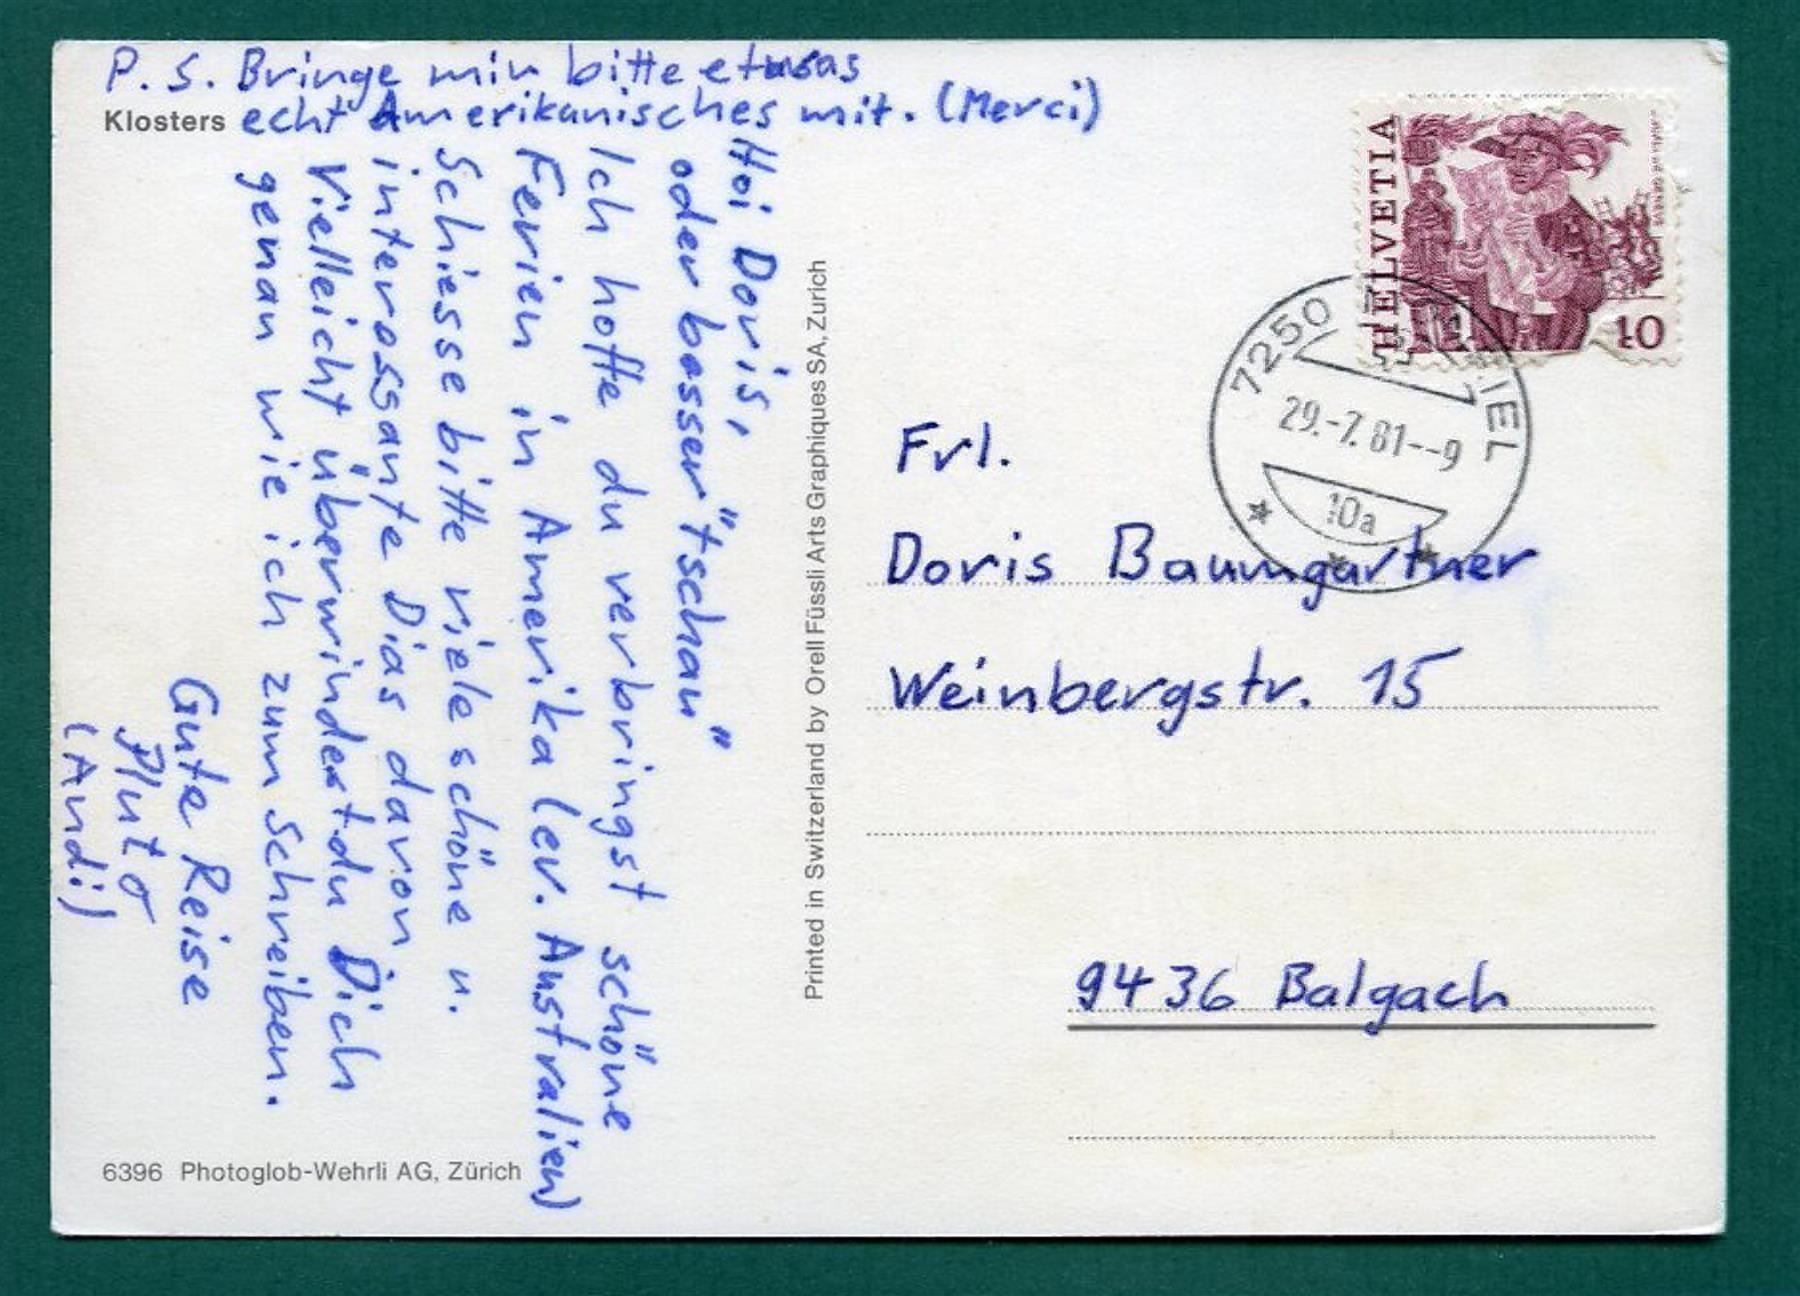 P. S. Bringe mir bitte etwas
echt Amerikanisches mit. (Merci)
Klosters
Hoi Doris,
oder besser "tschau"
Ich hoffe du verbringst schöne
Ferien in Amerika (ev. Australien)
Schiesse bitte viele schöne u.
interessante Dias davon,
Vielleicht überwindest du Dich
genau wie ich zum schreiben.
Gute Reise
Pluto
(Andi)
6396 Photoglob-Wehrli AG, Zürich
Printed in Switzerland by Orell Füssli Arts Graphiques SA, Zurich
HELVETIA
40
7250
29.-7. 81--9
10a
Frl.
Doris Baumgartner
Weinbergstr. 15
9436 Balgach